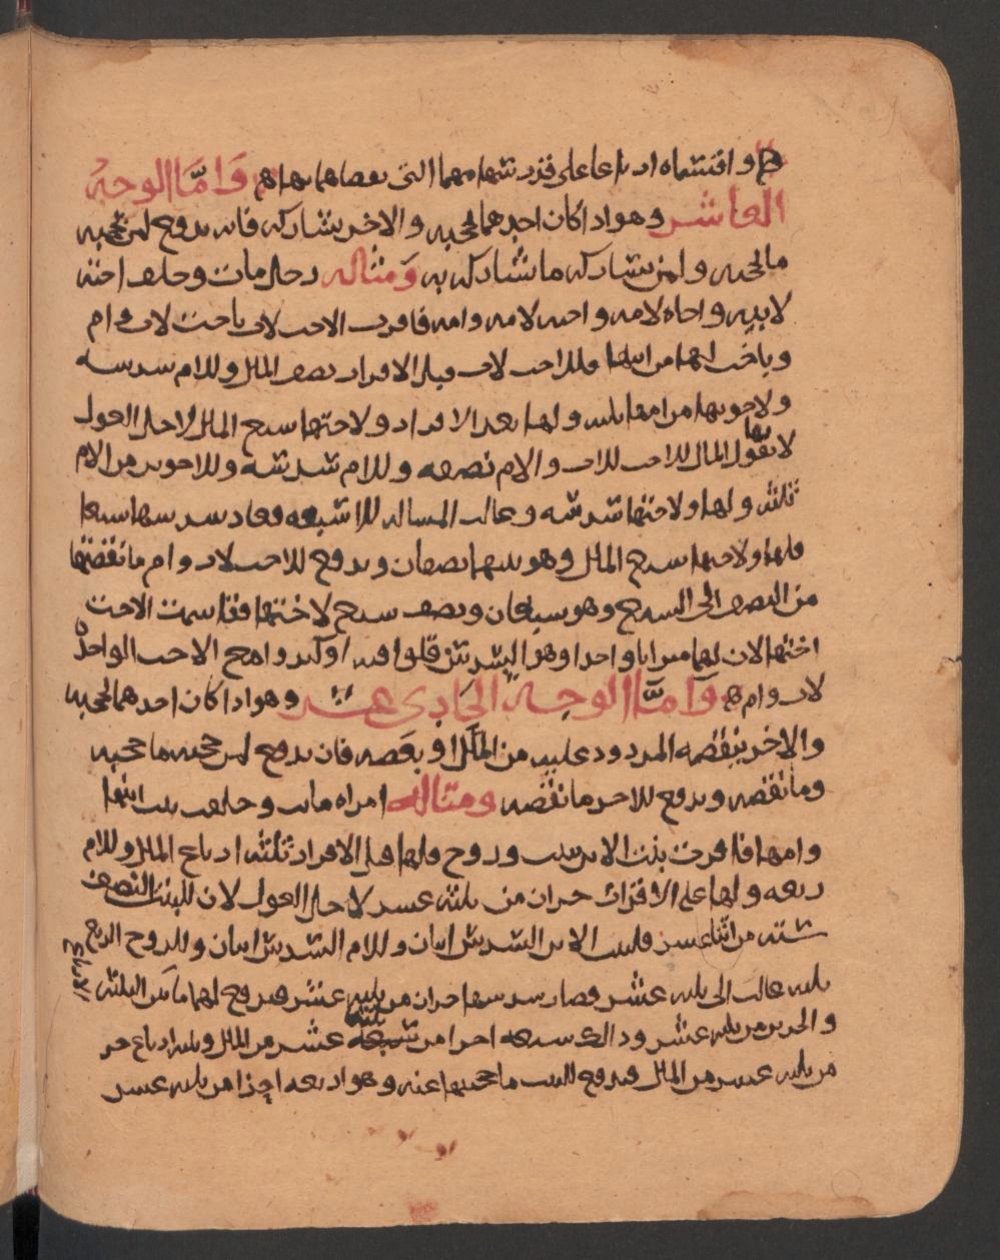 واقتسماه ارباعا على قدر سهامهما التى نقصاهما بها وَامَّا الوجهُ
العاشر وهو اذا كان احدهما يحجبه والاخر يشاركه فانه يدفع لمن يحجبه
ما يحجبه ولمن يشاركه ما شاركه به وَمثاله رجل مات وخلف اخته
لابيه واخاه لامه واخته لامه وامه فاقرت الاخت لاب باخت لاب وام
وباخت لهما من ابيها فللاخت لاب قبل الاقرار نصف المال وللام سدسه
ولاخويها من امها ثلثه ولها بعد الاقرار ولاختها سبع المال لاجل العول
لانها تقول المال للاخت للاب والام نصفه وللام سدسه وللاخوين من الام
ثلثه ولها ولاختها سدسه وعالت المسالة الى سبعه فعاد سدسها سبعا
فلها ولاختها سبع المال وهو بينهما نصفان ويدفع للاخت لاب وام ما نقصتها
من النصف الى السبع وهو سبعان ونصف سبع لاختها فقاسمت الاخت
اختها لان لهما ميراثا واحدا وهو السدس قلوا فيه او كثروا مع الاخت الواحده
لاب وام وَامَّا الوجه الحَادى عشر وهو اذا كان احدهما يحجبه
والاخر ينقصه المردود عليه من المال او بعضه فان يدفع لمن حجبه ما حجبه
وما نقصه ويدفع للاخر ما نقصه ومثاله امراه ماتت وخلفت بنت ابنها
وامها فاقرت بنت الابن ببنت وزوج فلها قبل الاقرار ثلثه ارباع المال وللام
ربعه ولها على الاقرار جزان من ثلثه عشر لاجل العول لان للبنت النصف
سته من اثنا عشر ولبنت الابن السدس اثنان وللام السدس اثنان وللزوج الربع
ثلثه عالت الى ثلثه عشر فصار سدسها جزان من ثلثه عشر فيدفع لهما ما بين الثلثه الارباع
والجزين من ثلثه عشر وذالك سبعه اجزا من ثلثه عشر من المال وثلثه ارباع جز
من ثلثه عشر من المال فيدفع للبنت ما حجبها عنه وهو اربعه اجزا من ثلثه عشر